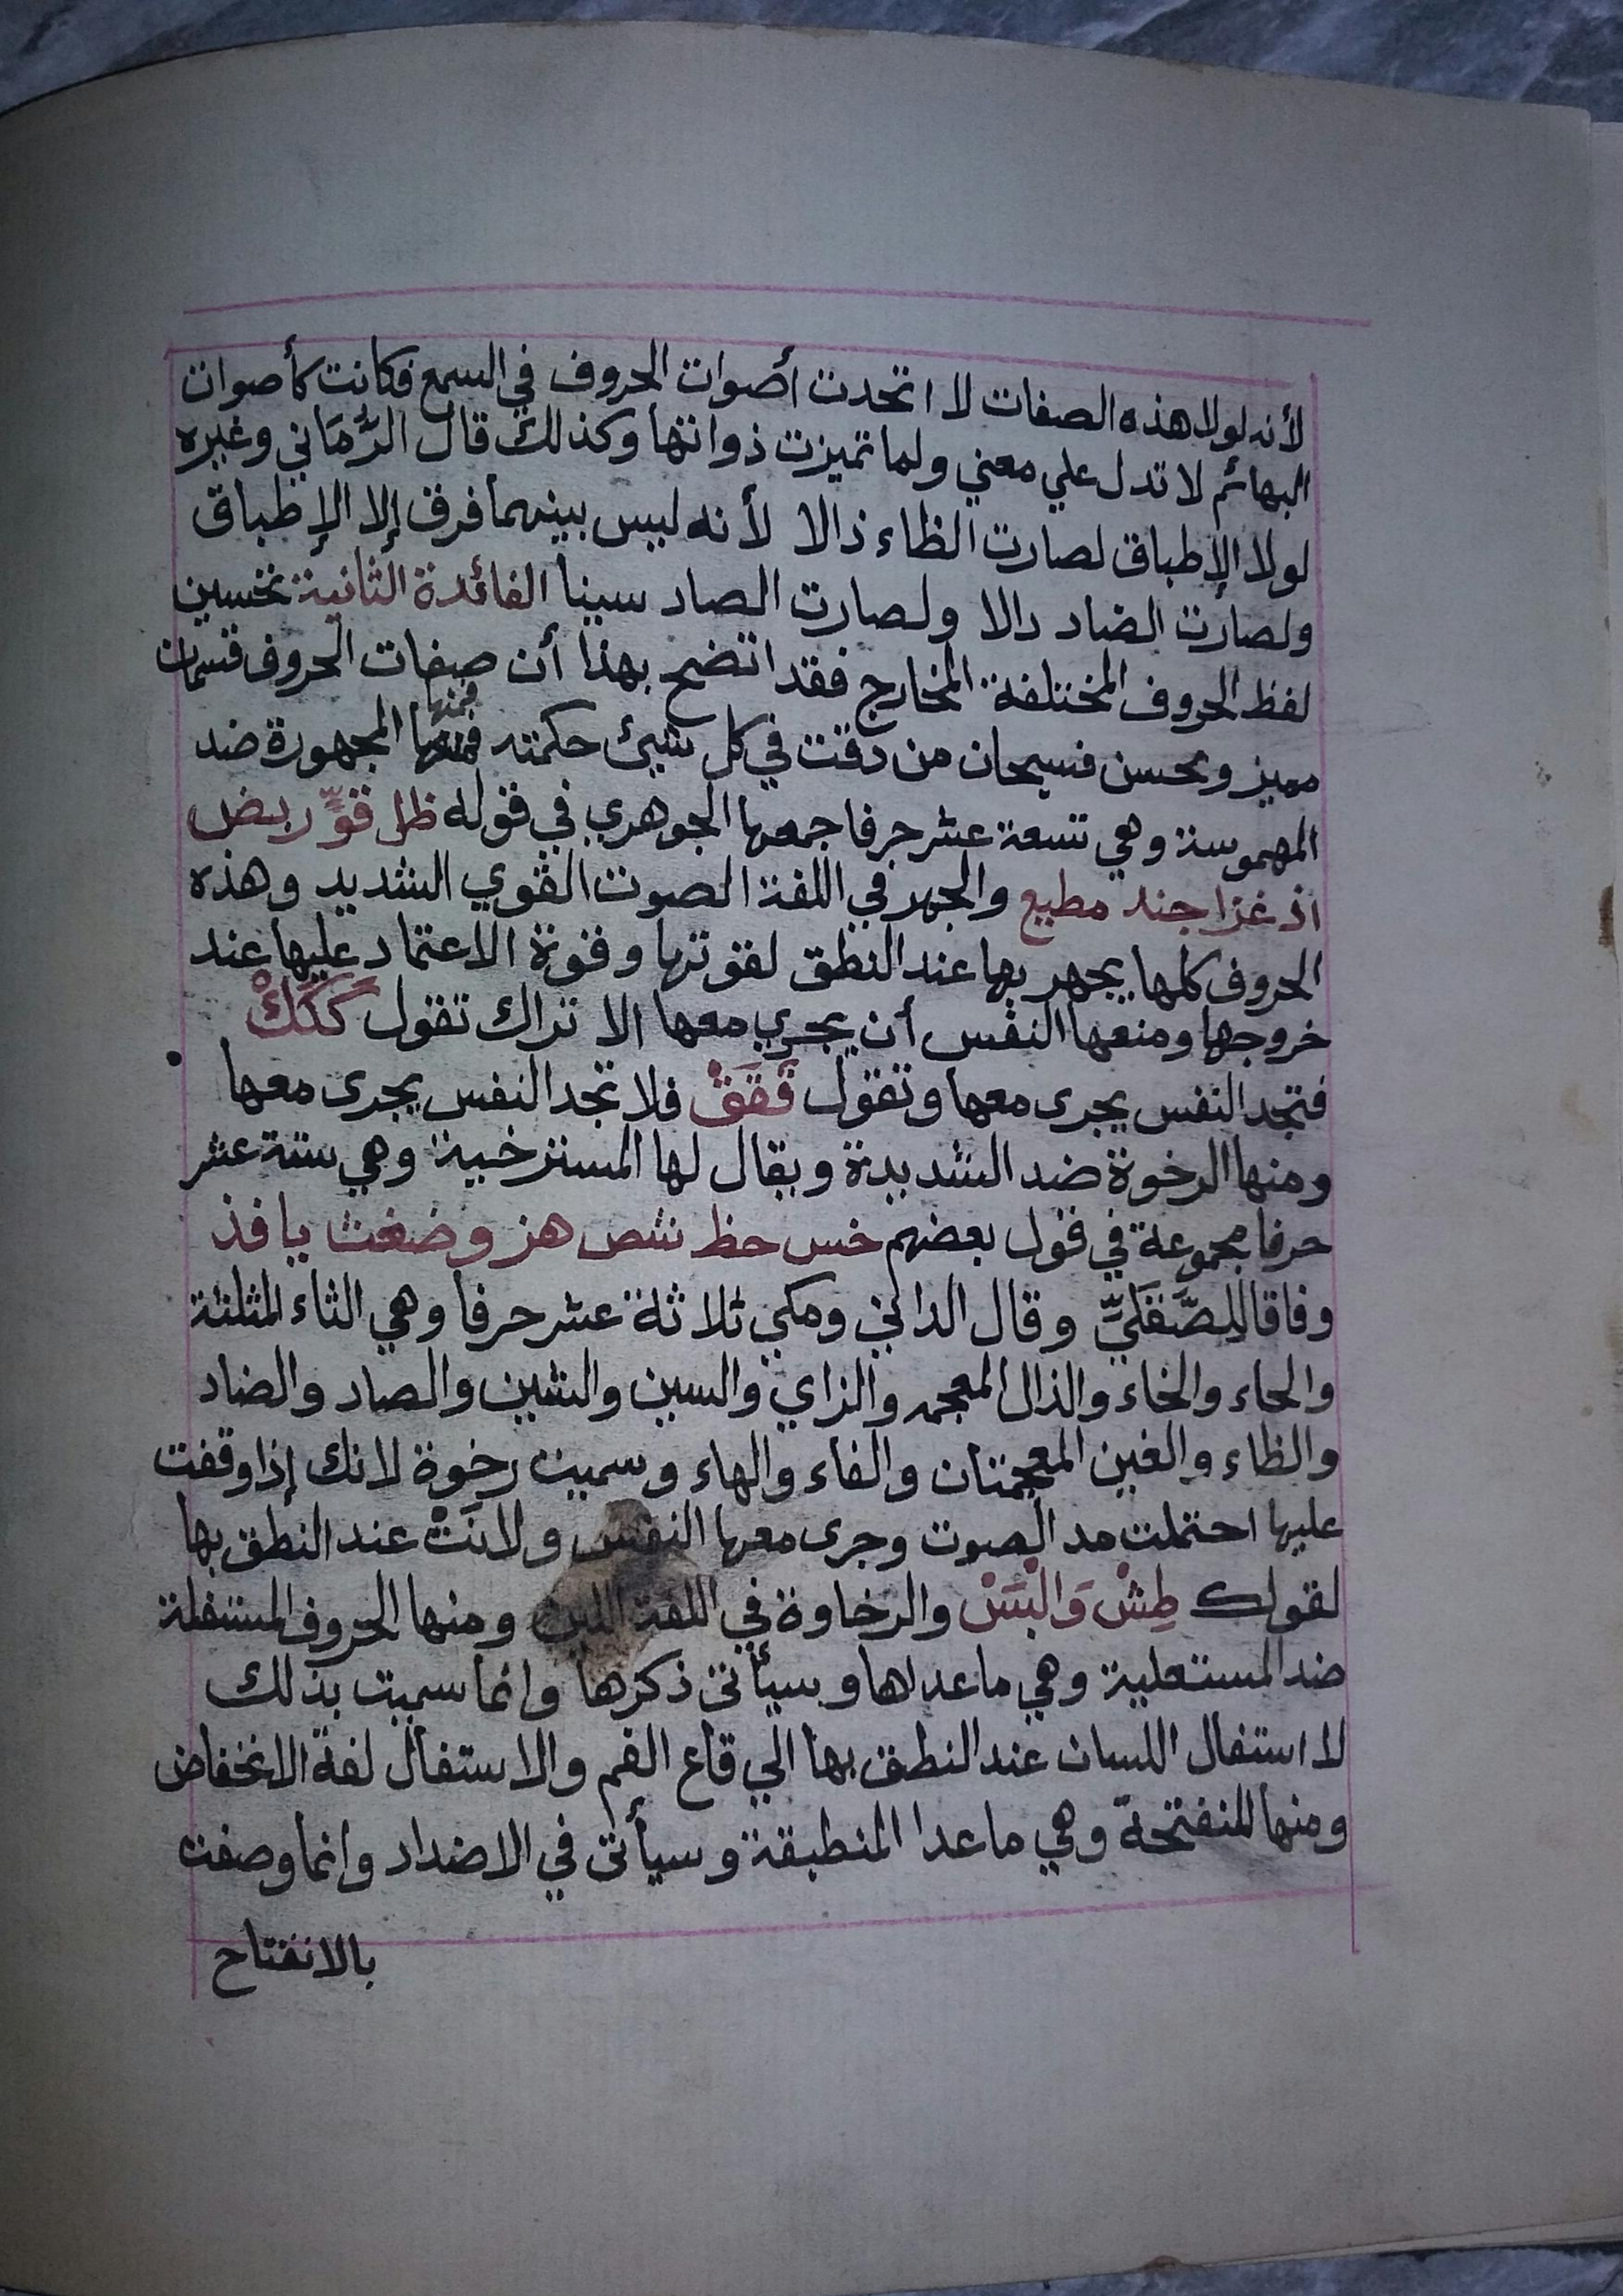 لأنه لولا هذه الصفات لا اتحدت أصوات الحروف في السمع فكانت كأصوات
البهائم لا تدل علي معني ولما تميزت ذواتها وكذلك قال الرُّمَاني وغيره
لولا الإطباق لصارت الظاء ذالا لأنه ليس بينهما فرق إلا الإطباق
ولصارت الضاد دالا ولصارت الصاد سينا الفائدة الثانية تحسين
لفظ الحروف المختلفة المخارج فقد اتضح بهذا أن صفات الحروف قسمان
مميز ومحسن فسبحان من دقت في كل شيئ حكمته فمنها المجهورة ضد
المهموسة وهي تسعة عشر حرفا جمعها الجوهري في قوله ظل قوٍّ ربض
اذ غزا جند مطيع والجهر في اللغة الصوت القوي الشديد وهذه
الحروف كلها يجهر بها عند النطق لقوتها وقوة الاعتماد عليها عند
خروجها ومنعها النفس أن يجري معها الا تراك تقول كَكَكْ
فتجد النفس يجرى معها وتقول قَقَقْ فلا تجد النفس يجرى معها
ومنها الرخوة ضد الشديدة ويقال لها المسترخية وهي ستة عشر
حرفا مجموعة في قول بعضهم خس حظ شص هز وضغث يا فذ
وفاقا للصَّقَليِّ وقال الداني ومكي ثلاثة عشر حرفا وهي الثاء المثلثة
والحاء والخاء والذال المعجمه والزاي والسين والشين والصاد والضاد
والظاء والغين المعجمتان والفاء والهاء وسميت رخوة لانك إذا وقفت
عليها احتملت مد الصوت وجرى معها النفس ولانَتْ عند النطق بها
لقولك طِشْ وَالْبَسْ والرخاوة في اللغة اللين ومنها الحروف المستفلة
ضد المستعلية وهي ما عداها وسيأتى ذكرها وانما سميت بذلك
لا استفال اللسان عند النطق بها الي قاع الفم والاستفال لغة الانخفاض
ومنها المنفتحة وهي ما عدا المنطبقة وسيأتى في الاضداد وانما وصفت
بالانفتاح